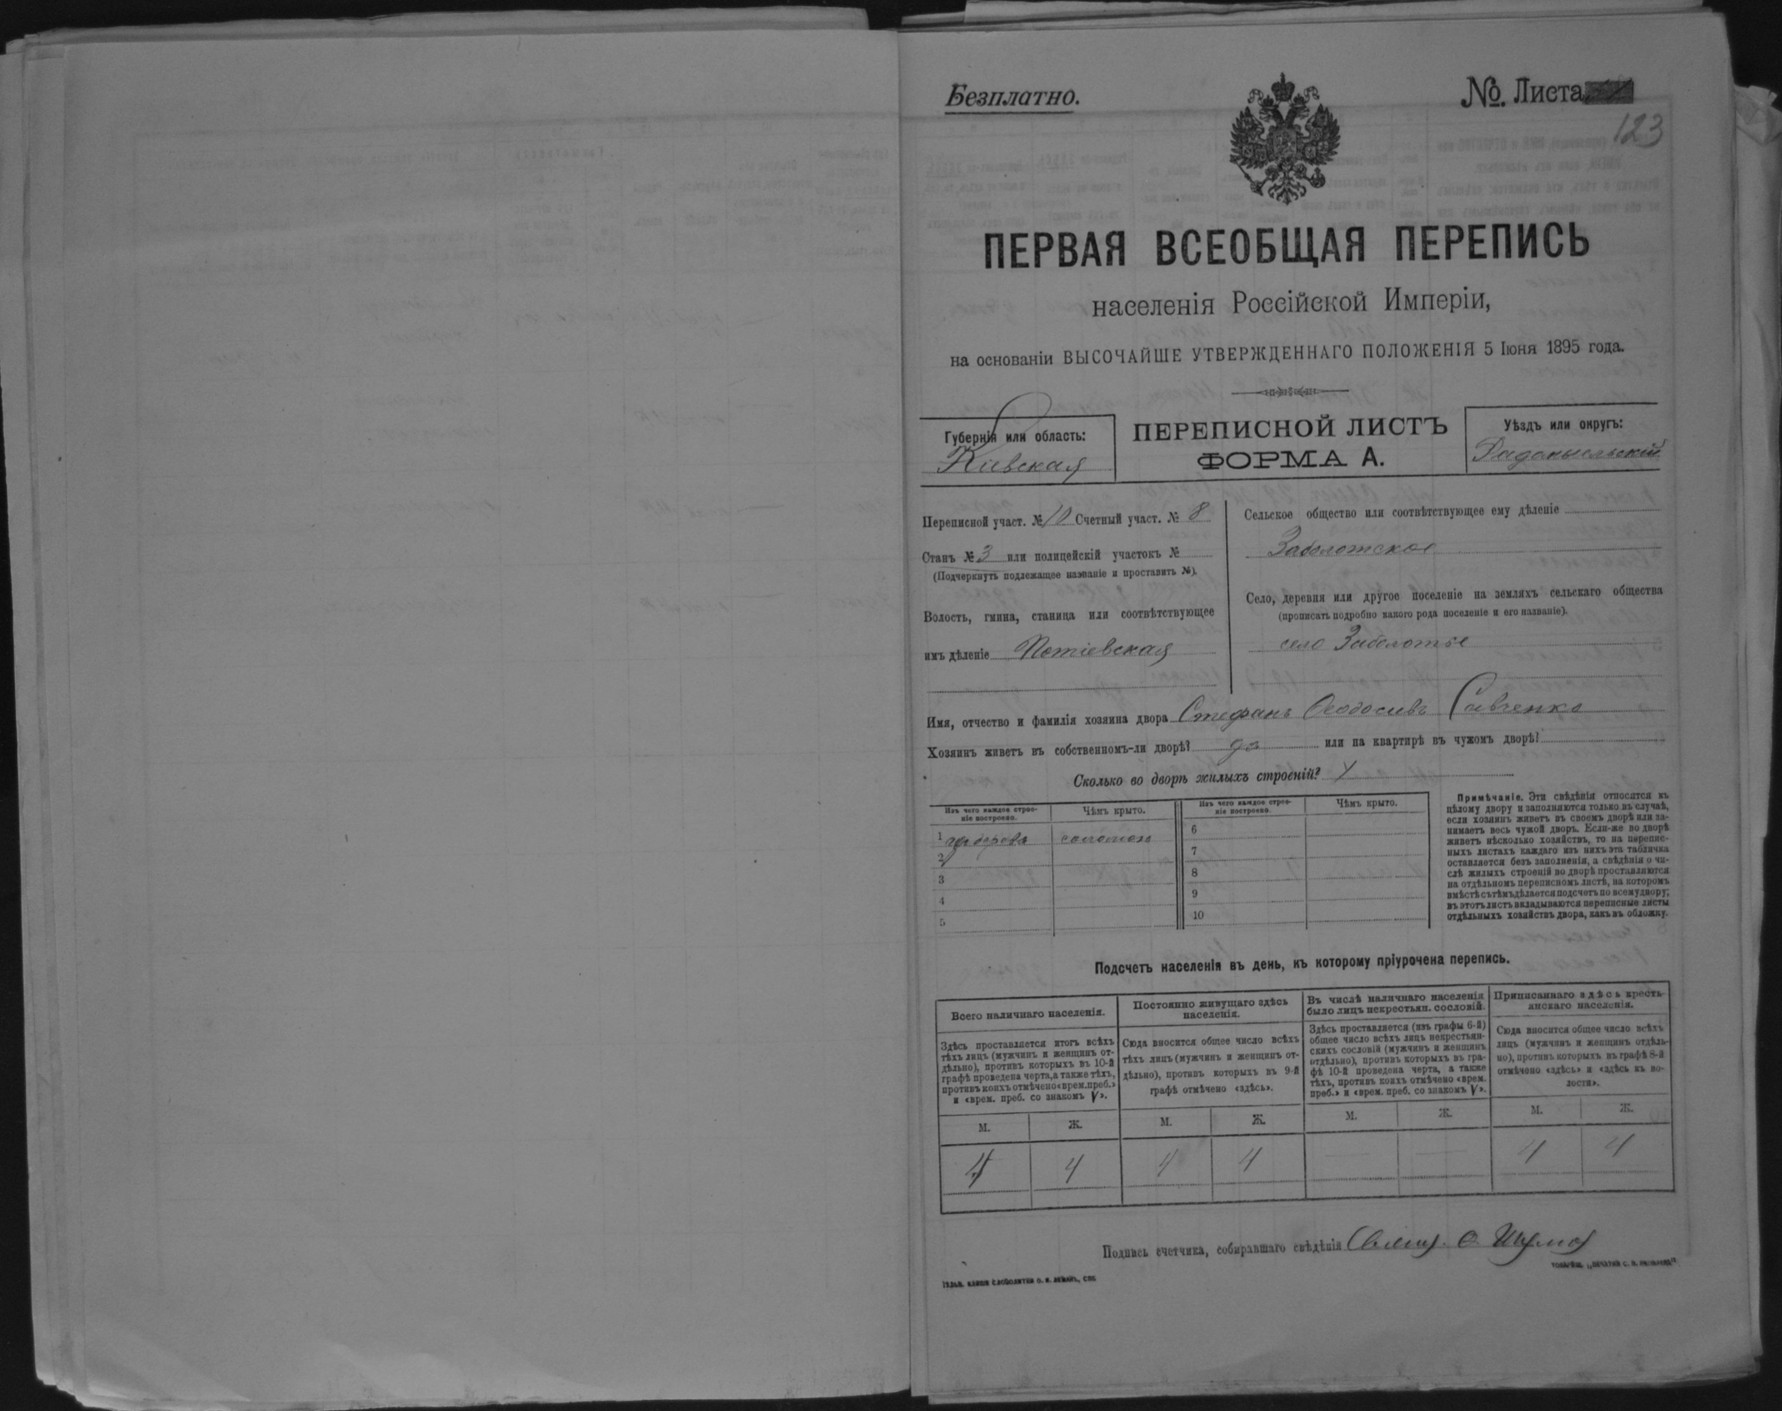 Безплатно.
№. Листа
123
ПЕРВАЯ ВСЕОБЩАЯ ПЕРЕПИСЬ
населенія Россійской Имперіи,
на основаніи ВЫСОЧАЙШЕ УТВЕРЖДЕННАГО ПОЛОЖЕНІЯ 5 Іюня 1895 года.
Губернія или область:
Кіевская
ПЕРЕПИСНОЙ ЛИСТЪ
ФОРМА А.
Уѣздъ или округъ:
Радомысльскій
Переписной участ. № 10 Счетный участ. № 8
Станъ № 3 или полицейскій участокъ №
(Подчеркнуть подлежащее названіе и проставить №).
Волость, гмина, станица или соотвѣтствующее
имъ дѣленіе Потіевская
Сельское общество или соотвѣтствующее ему дѣленіе
Заболотское
Село, деревня или другое поселеніе на земляхъ сельскаго общества
(прописать подробно какого рода поселеніе и его названіе).
село Заболотье
Имя, отчество и фамилія хозяина двора Стефанъ Ѳеодосіевъ Савченко
Хозяинъ живетъ въ собственномъ-ли дворѣ? да или на квартирѣ въ чужомъ дворѣ?
Сколько во дворѣ жилыхъ строеній?
Изъ чего каждое строе-
ніе построено.
Чѣмъ крыто.
Изъ чего каждое строе-
ніе построено.
Чѣмъ крыто.
1 дерева соломой
2
3
4
5
6
7
8
9
10
Примѣчаніе. Эти свѣдѣнія относятся къ
цѣлому двору и заполняются только въ случаѣ,
если хозяинъ живетъ въ своемъ дворѣ или за-
нимаетъ весь чужой дворъ. Если-же во дворѣ
живетъ нѣсколько хозяйствъ, то на перепис-
ныхъ листахъ каждаго изъ нихъ эта табличка
оставляется безъ заполненія, а свѣдѣнія о чи-
слѣ жилыхъ строеній во дворѣ проставляются
на отдѣльномъ переписномъ листѣ, на которомъ
вмѣстѣ съ тѣмъ дѣлается подсчетъ по всему двору;
въ этотъ листъ вкладываются переписные листы
отдѣльныхъ хозяйствъ двора, какъ въ обложку.
Подсчетъ населенія въ день, къ которому пріурочена перепись.
Всего наличнаго населенія.
Здѣсь проставляется итогъ всѣхъ
тѣхъ лицъ (мужчинъ и женщинъ от-
дѣльно), противъ которыхъ въ 10-й
графѣ проведена черта, а также тѣхъ,
противъ коихъ отмѣчено «врем. преб.»
и «врем. преб. со знакомъ V».
Постоянно живущаго здѣсь
населенія.
Сюда вносится общее число всѣхъ
тѣхъ лицъ (мужчинъ и женщинъ от-
дѣльно), противъ которыхъ въ 9-й
графѣ отмѣчено «здѣсь».
Въ числѣ наличнаго населенія
было лицъ некрестьян. сословій.
Здѣсь проставляется (изъ графы 6-й)
общее число всѣхъ лицъ некрестьян-
скихъ сословій (мужчинъ и женщинъ
отдѣльно), противъ которыхъ въ гра-
фѣ 10-й проведена черта, а также
тѣхъ, противъ коихъ отмѣчено «врем.
преб.» и «врем. преб. со знакомъ V».
Приписаннаго здѣсь кресть-
янскаго населенія.
Сюда вносится общее число всѣхъ
лицъ (мужчинъ и женщинъ отдѣль-
но), противъ которыхъ въ графѣ 8-й
отмѣчено «здѣсь» и «здѣсь въ во-
лости».
М. Ж. М. Ж. М. Ж. М. Ж.
4 4 4 4 — — 4 4
Подпись счетчика, собиравшаго свѣдѣнія